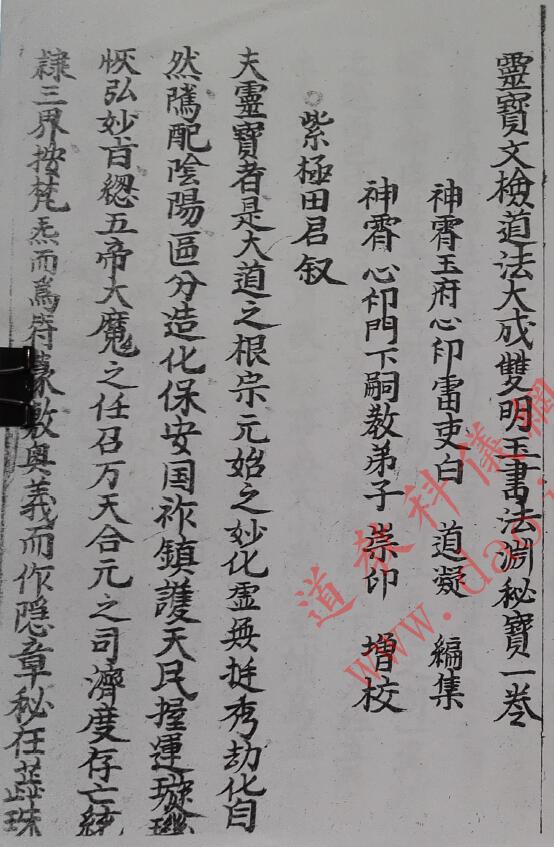 靈寶文檢道法大成雙明玉書法淵秘寶一卷
神霄玉府心印雷吏白 道凝 編集
神霄心印門下嗣教弟子 崇印 增校
紫極田君叙
夫靈寶者是大道之根宗元始之妙化虛無挺秀劫化自
然隲配陰陽區分造化保安国祚鎮護天民握運璇璣
恢弘妙旨緫五帝大魔之任召万天合元之司濟度存亡統
隸三界按梵炁而爲符篆敷奥義而作隠章秘在蘂珠
道教科儀網